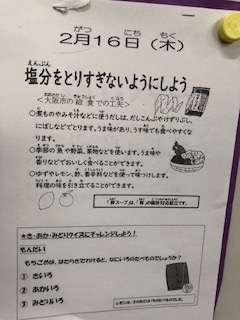 2月16日（木）
塩分をとりすぎないようにしよう
＜大阪市の給食での工夫＞
○煮ものやみそ汁などに使うだしは、だしこんぶやけずりぶし、
にぼしなどでとります。うま味があり、うす味でも食べやすくな
ります。
○季節の魚や野菜、果物などを使います。うま味や
香りなどでおいしく食べることができます。
○ゆずやレモン、酢、香辛料などを使って味つけします。
料理の味を引きたてることができます。
★き・あか・みどりクイズにチャレンジしよう！
もんだい
もちごめは、はたらきでわけると、なにいろのたべものでしょうか？
① きいろ
② あかいろ
③ みどりいろ